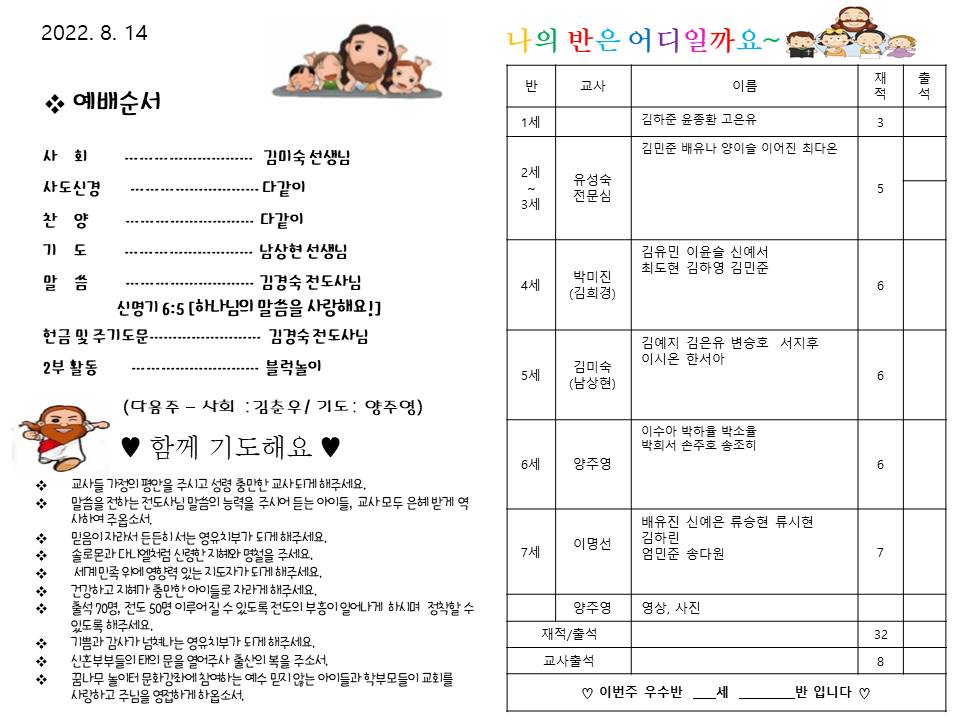 2022. 8. 14
❖ 예배순서
사 회 --------------------------- 김미숙 선생님
사도신경 --------------------------- 다같이
찬 양 --------------------------- 다같이
기 도 --------------------------- 남상현 선생님
말 씀 --------------------------- 김경숙 전도사님
신명기 6:5 [하나님의 말씀을 사랑해요!]
헌금 및 주기도문------------------------ 김경숙 전도사님
2부 활동 --------------------------- 블럭놀이
(다음주 – 사회 :김춘우/ 기도: 양주영)
♥ 함께 기도해요 ♥
❖ 교사들 가정의 평안을 주시고 성령 충만한 교사 되게 해주세요.
❖ 말씀을 전하는 전도사님 말씀의 능력을 주시어 듣는 아이들, 교사 모두 은혜 받게 역
사하여 주옵소서.
❖ 믿음이 자라서 든든히 서는 영유치부가 되게 해주세요.
❖ 솔로몬과 다니엘처럼 신령한 지혜와 명철을 주세요.
❖ 세계 민족 위에 영향력 있는 지도자가 되게 해주세요.
❖ 건강하고 지혜가 충만한 아이들로 자라게 해주세요.
❖ 출석 70명, 전도 50명 이루어 질 수 있도록 전도의 부흥이 일어나게 하시며 정착할 수
있도록 해주세요.
❖ 기쁨과 감사가 넘쳐나는 영유치부가 되게 해주세요.
❖ 신혼부부들의 태의 문을 열어주사 출산의 복을 주소서.
❖ 꿈나무 놀이터 문화강좌에 참여하는 예수 믿지 않는 아이들과 학부모들이 교회를
사랑하고 주님을 영접하게 하옵소서.
나의 반은 어디일까요~
반 교사 이름 재적 출석
1세 김하준 윤종환 고은유 3
2세 ~ 3세 유성숙 전문심 김민준 배유나 양이슬 이어진 최다온 5
4세 박미진 (김희경) 김유민 이윤슬 신예서
최도현 김하영 김민준 6
5세 김미숙 (남상현) 김예지 김은유 변승호 서지후
이시온 한서아 6
6세 양주영 이수아 박하율 박소율
박희서 손주호 송조히 6
7세 이명선 배유진 신예은 류승현 류시현
김하린
엄민준 송다원 7
양주영 영상, 사진
재적/출석 32
교사출석 8
♡ 이번주 우수반 ___세 ________반 입니다 ♡